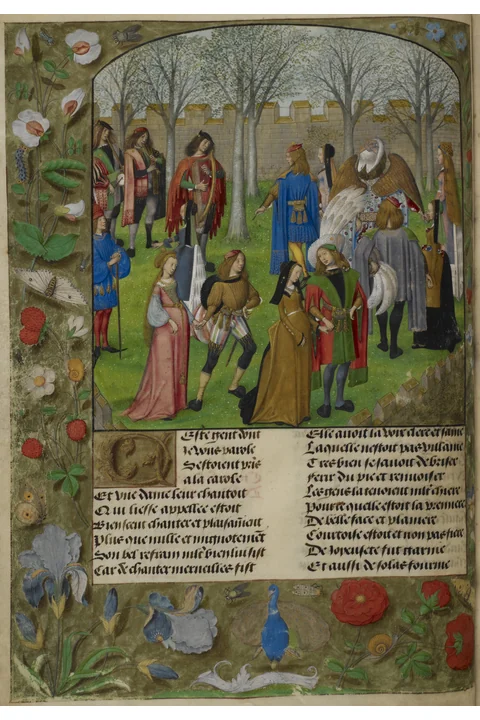 Ceste gent dont
Je vous parole
Sestoient pris
a la carole
Et vne dame leur chantoit
Qui liesse appellee estoit
Bien sceut chanter et plaisãment
Plus que nulle et mignotement
Son bel refrain mlt bien luy sist
Car de chanter merueilles fist
Elle auoit la voix clere et saine
Laquelle nestoit pas villaine
Tres bien se sauoit debriser
ferir du pie et renuoiser
Les gens la tenoient mlt chiere
Pource quelle estoit la premiere
De belle face et planiere
Courtoise estoit et non pas fiere
De ioyeusete fut garnie
Et aussi de solas fournie